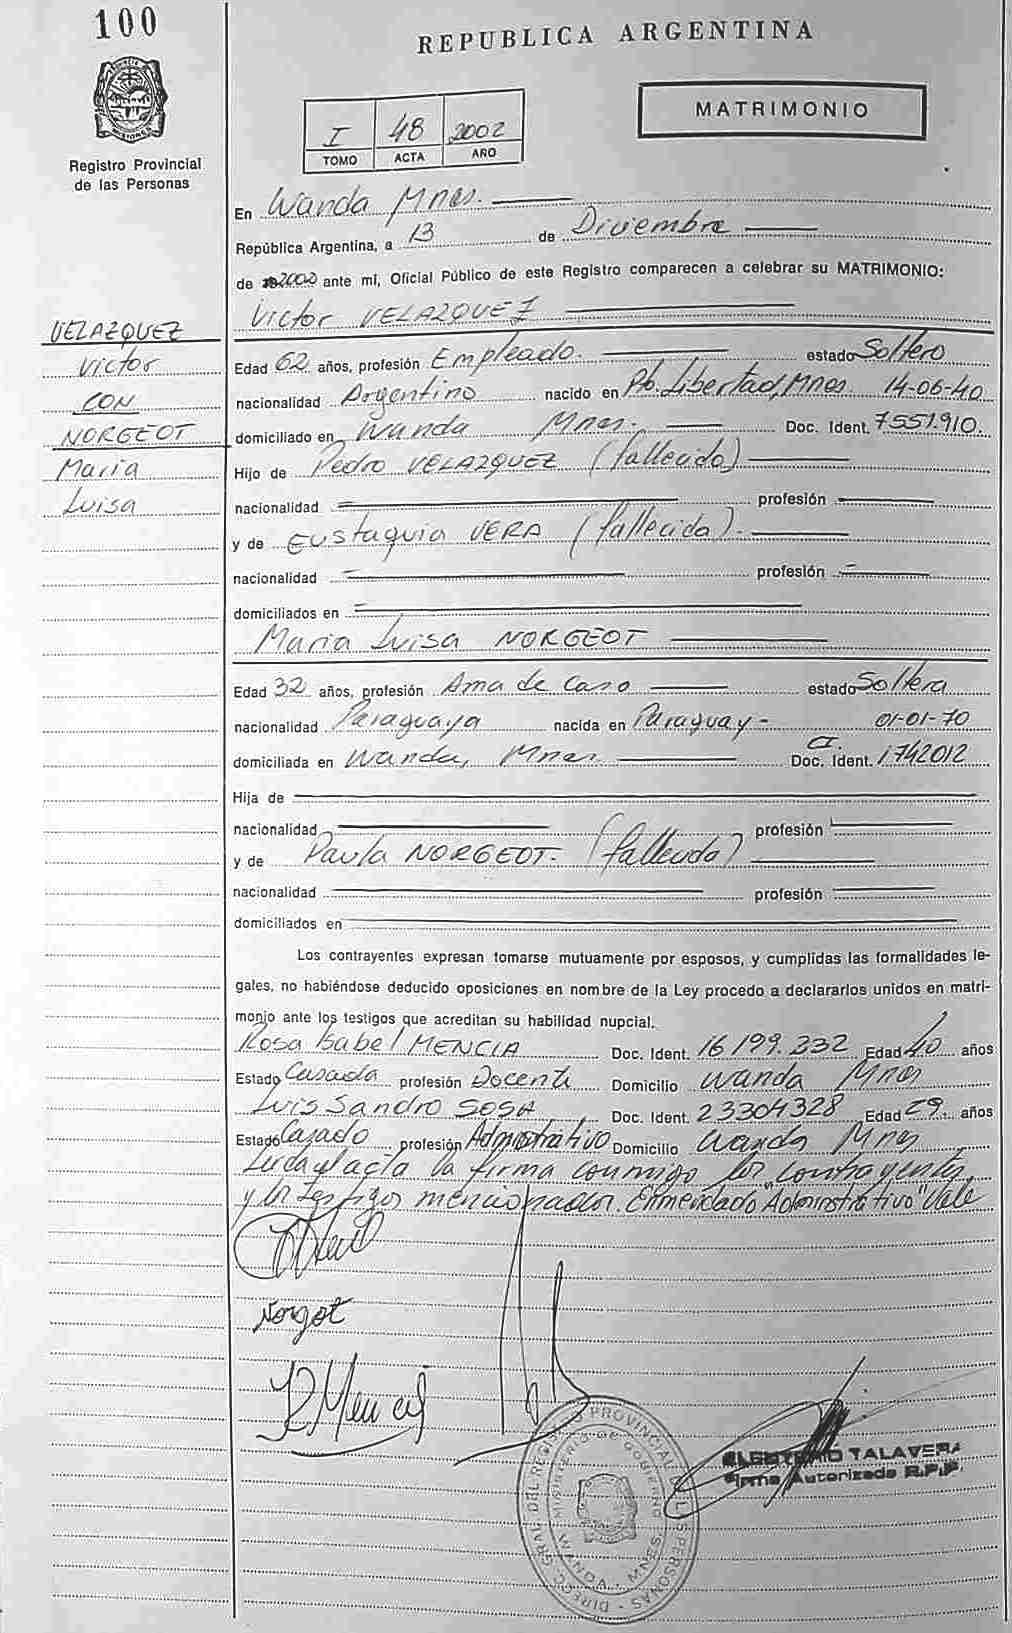 100
REPUBLICA ARGENTINA
MATRIMONIO
I 48 2002
TOMO ACTA AÑO
Registro Provincial
de las Personas
En Wanda Mnes.
República Argentina, a 13 de Diciembre
de 2002 ante mí, Oficial Público de este Registro comparecen a celebrar su MATRIMONIO:
Victor VELAZQUEZ
VELAZQUEZ
Victor
CON
NORGEOT
Maria
Luisa
Edad 62 años, profesión Empleado. estado Soltero
nacionalidad Argentino nacido en Pto. Libertad, Mnes. 14-06-40
domiciliado en Wanda Mnes. Doc. Ident. 7.551.910.
Hijo de Pedro VELAZQUEZ (fallecido)
nacionalidad profesión
y de Eustaquia VERA (fallecida).
nacionalidad profesión
domiciliados en
Maria Luisa NORGEOT
Edad 32 años, profesión Ama de Casa estado Soltera
nacionalidad Paraguaya nacida en Paraguay - 01-01-70
domiciliada en Wanda, Mnes. CI. Doc. Ident. 1742012
Hija de
nacionalidad profesión
y de Paula NORGEOT. (fallecida)
nacionalidad profesión
domiciliados en
Los contrayentes expresan tomarse mutuamente por esposos, y cumplidas las formalidades le-
gales, no habiéndose deducido oposiciones en nombre de la Ley procedo a declararlos unidos en matri-
monio ante los testigos que acreditan su habilidad nupcial.
Rosa Isabel MENCIA Doc. Ident. 16.199.332 Edad 40 años
Estado Casada profesión Docente Domicilio Wanda Mnes
Luis Sandro SOSA Doc. Ident. 23304328 Edad 29 años
Estado Casado profesión Administrativo Domicilio Wanda Mnes
Leida el acta la firma conmigo los contrayentes
y los testigos mencionados. Enmendado "Administrativo" Vale
Norgot
R Mencia
DIREC. GRAL. DEL REGISTRO PROVINCIAL DE LAS PERSONAS
MINISTERIO DE GOBIERNO
WANDA - MNES
TALAVERA
Firma Autorizada R.P.P.